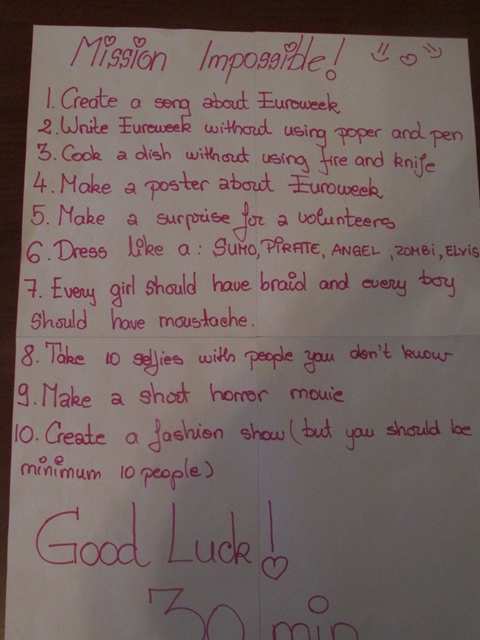 Mission Impossible!
1. Create a song about Euroweek
2. Write Euroweek without using poper and pen
3. Cook a dish without using fire and knife
4. Make a poster about Euroweek
5. Make a surprise for a volunteers
6. Dress like a: SUMO, PIRATE, ANGEL, ZOMBI, ELVIS
7. Every girl should have braid and every boy
should have moustache.
8. Take 10 selfies with people you don't know
9. Make a short horror movie
10. Create a fashion show (but you should be
minimum 10 people)
Good Luck!
30 min